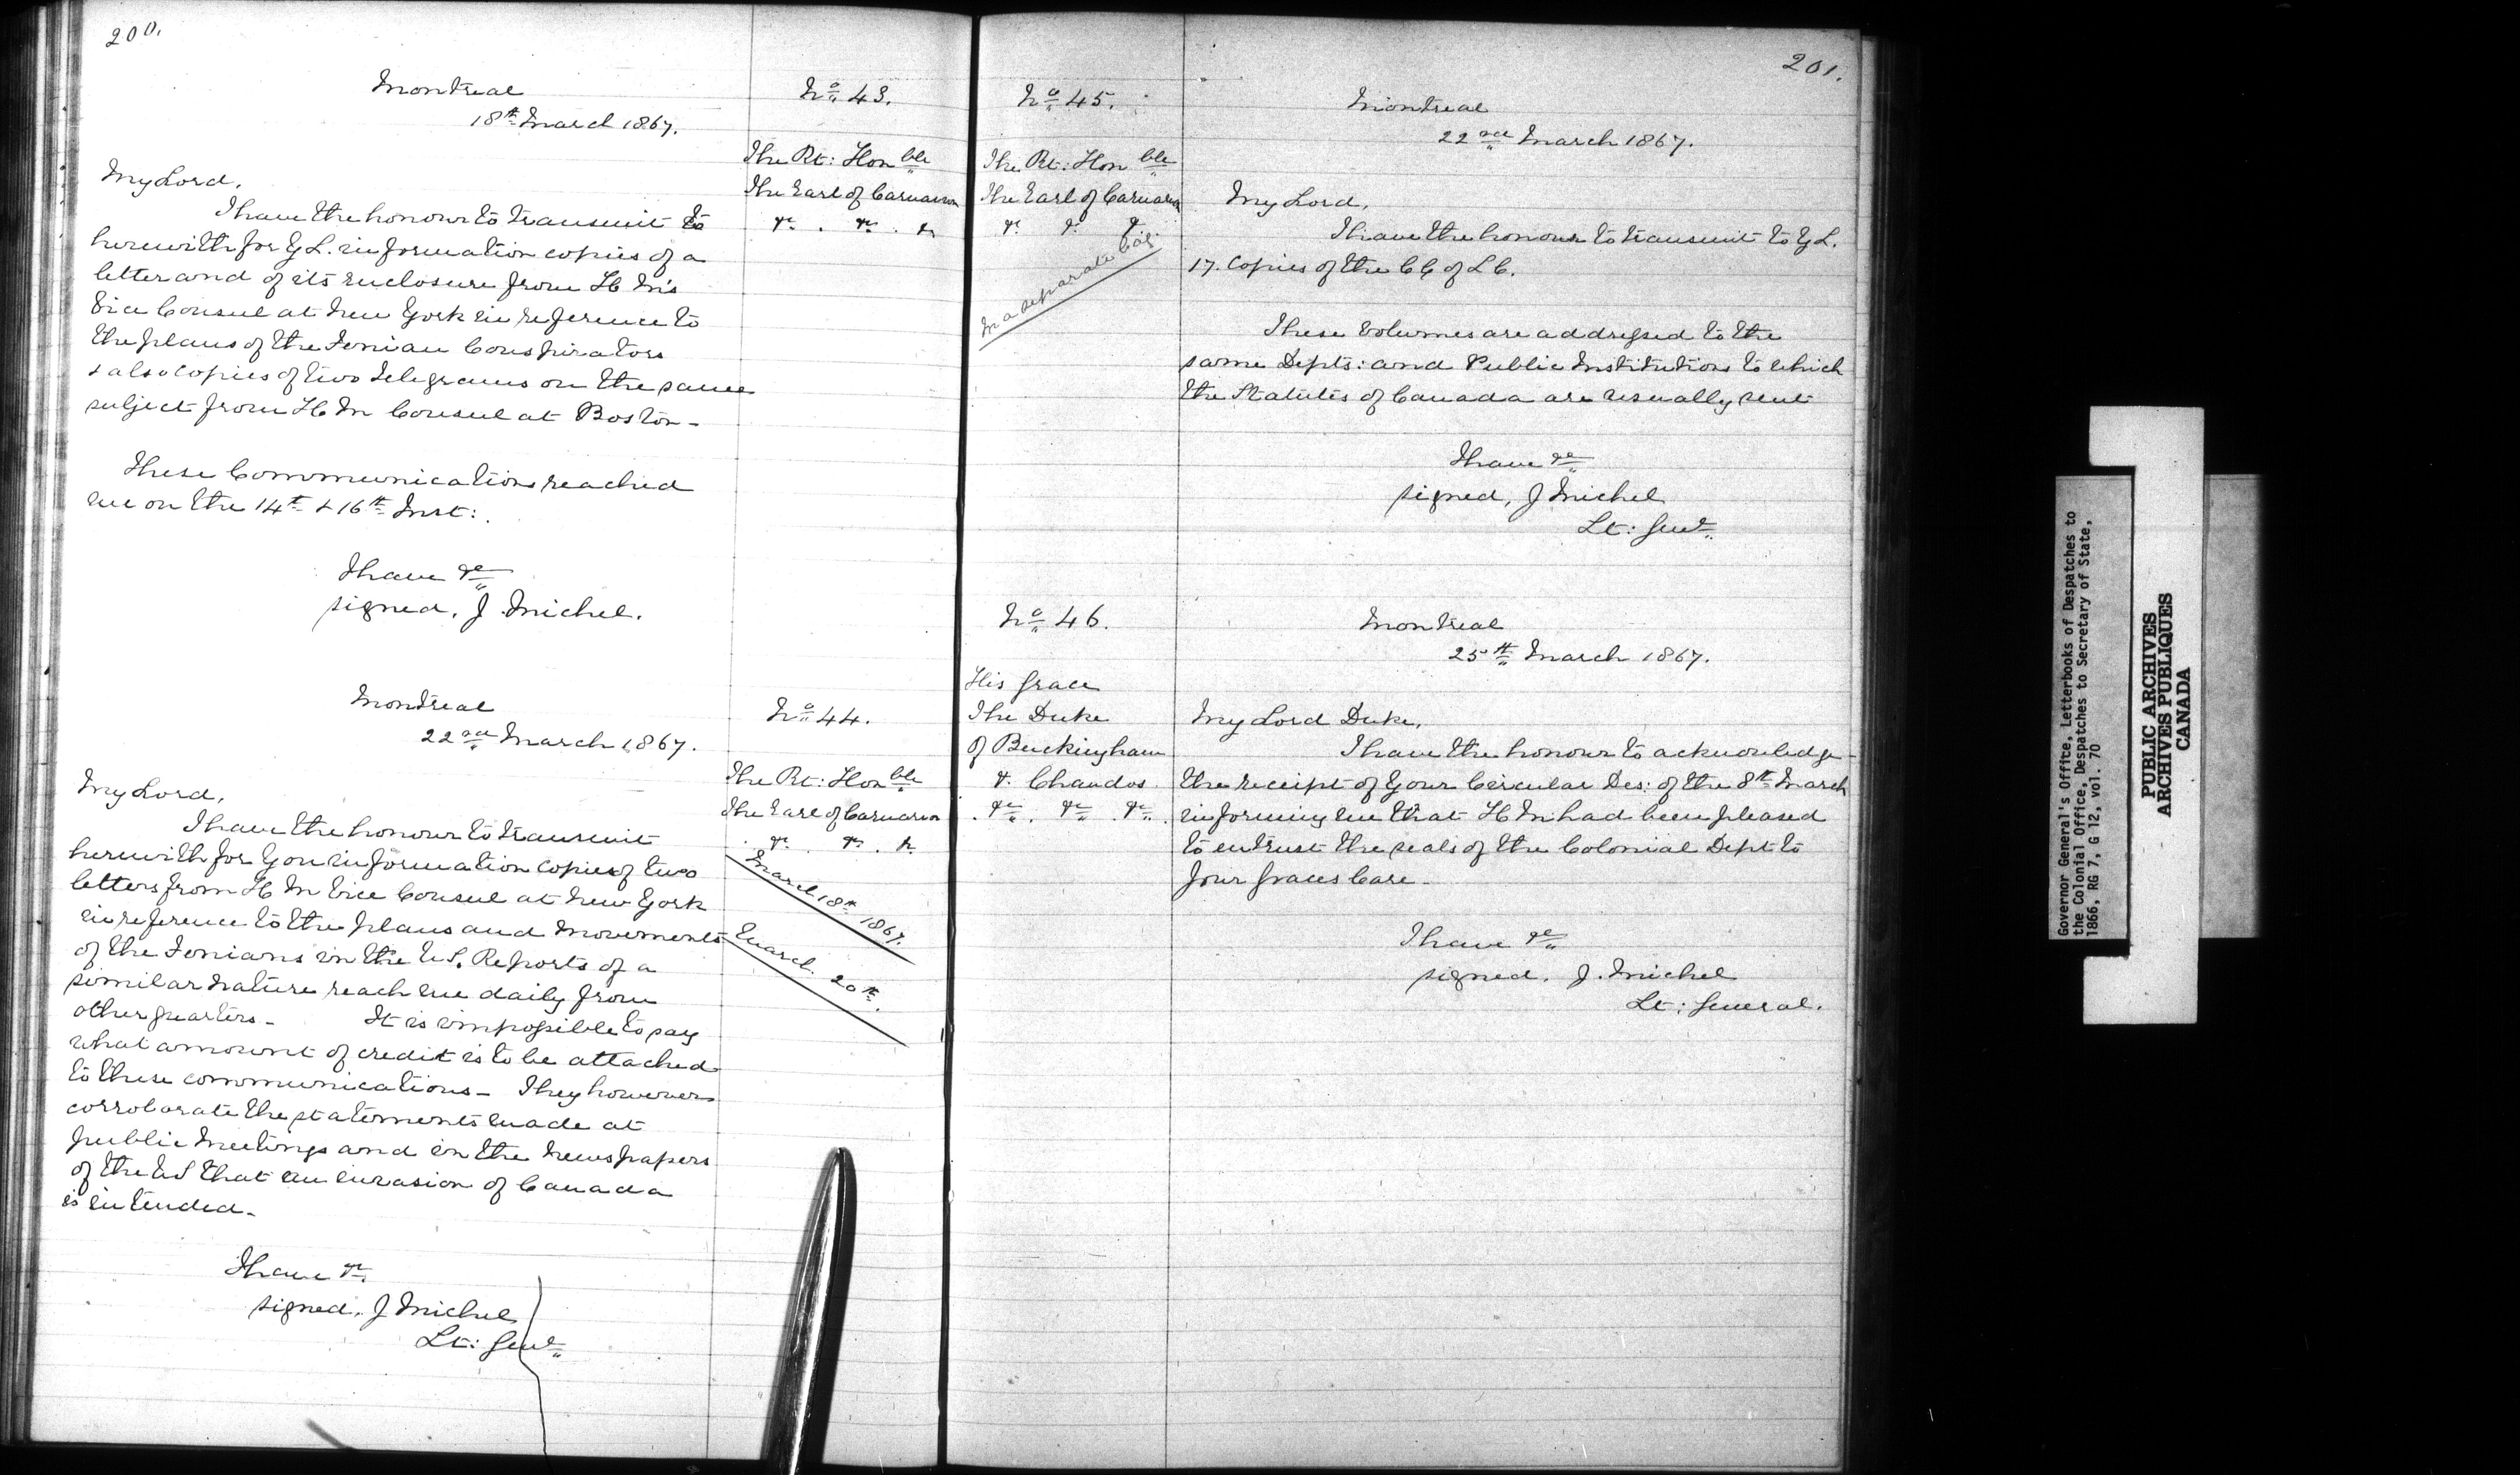 200.
Montreal
18th March 1867.
No 43.
The Rt: Honble
The Earl of Carnarvon
&c . &c . &c
My Lord,
I have the honour to transmit to
herewith for Y L. information copies of a
letter and of its enclosure from H M's
Vice Consul at New York in reference to
the plans of the Fenian Conspirators
& also copies of two telegrams on the same
subject from H M Consul at Boston -
These Communications reached
me on the 14th & 16th Inst:.
I have &c
signed, J. Michel.
Montreal
22nd March 1867.
No 44.
The Rt: Honble
The Earl of Carnarvon
&c . &c . &c
March 18th 1867.
March 20th.
My Lord,
I have the honour to transmit
herewith for You information copies of two
letters from H M Vice Consul at New York
in reference to the plans and movements
of the Fenians in the U.S. Reports of a
similar nature reach me daily from
other quarters - It is impossible to say
what amount of credit is to be attached
to these communications - They however
corrobarate the statements made at
public Meetings and in the Newspapers
of the U S that an invasion of Canada
is intended -
I have &c
signed, J Michel
Lt: Genl
201.
No 45.
The Rt: Honble
The Earl of Carnarvon
&c &c &c
In a separate bag
Montreal
22nd March 1867.
My Lord,
I have the honour to transmit to Y L.
17. Copies of the C C of L C.
These Volumes are addressed to the
same Depts: and Public Institutions to which
the Statutes of Canada are usually sent
I have &c
signed, J Michel
Lt: Genl
No 46.
His Grace
The Duke
of Buckingham
& Chandos
&c . &c . &c
Montreal
25th March 1867.
My Lord Duke,
I have the honour to acknowledge
the receipt of Your Circular Des: of the 8th March
informing me that H M had been pleased
to entrust the seals of the Colonial Dept to
Your Graces Care -
I have &c
signed, J. Michel
Lt: General.
Governor General's Office, Letterbooks of Despatches to
the Colonial Office, Despatches to Secretary of State,
1866, RG 7, G 12, vol. 70
PUBLIC ARCHIVES
ARCHIVES PUBLIQUES
CANADA